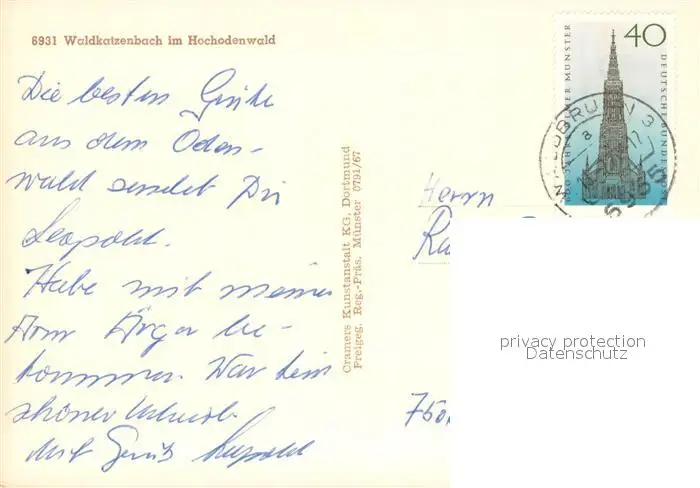 6931 Waldkatzenbach im Hochodenwald
Die besten Grüße
aus dem Oden-
wald sendet Dir
Leopold.
Habe mit meinem
Arm Ärger be-
kommen. War kein
schöner Urlaub.
Mit Gruß Leopold
Cramers Kunstanstalt KG, Dortmund
Preigeg. Reg.-Präs. Münster 0791/67
40
JAHRE MÜNSTER
DEUTSCHE BUNDESPOST
Herrn
750
privacy protection
Datenschutz